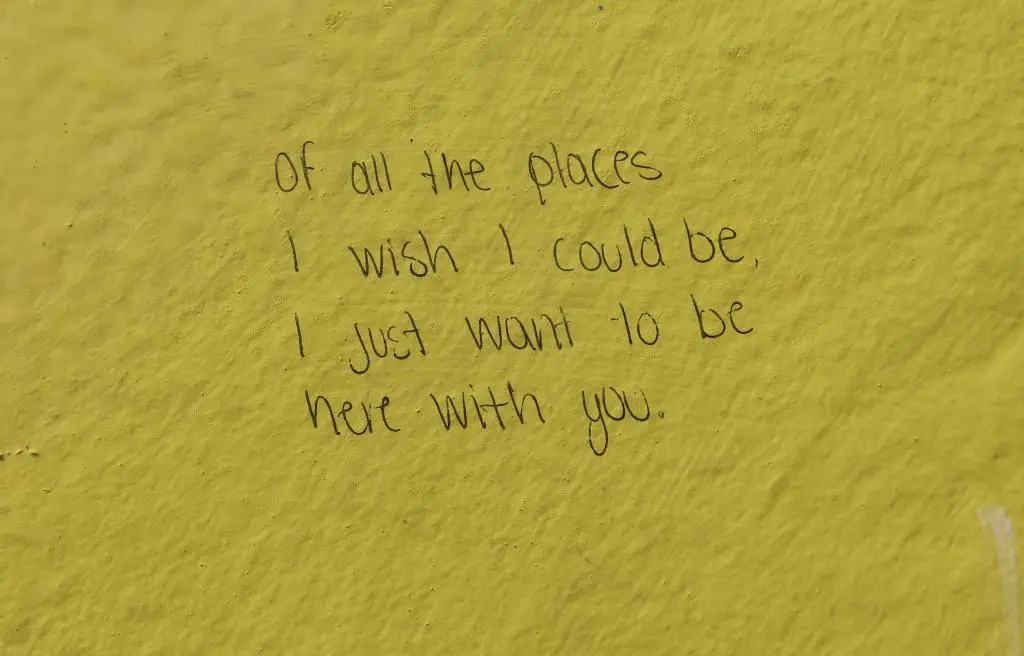 Of all the places
I wish I could be,
I just want to be
here with you.